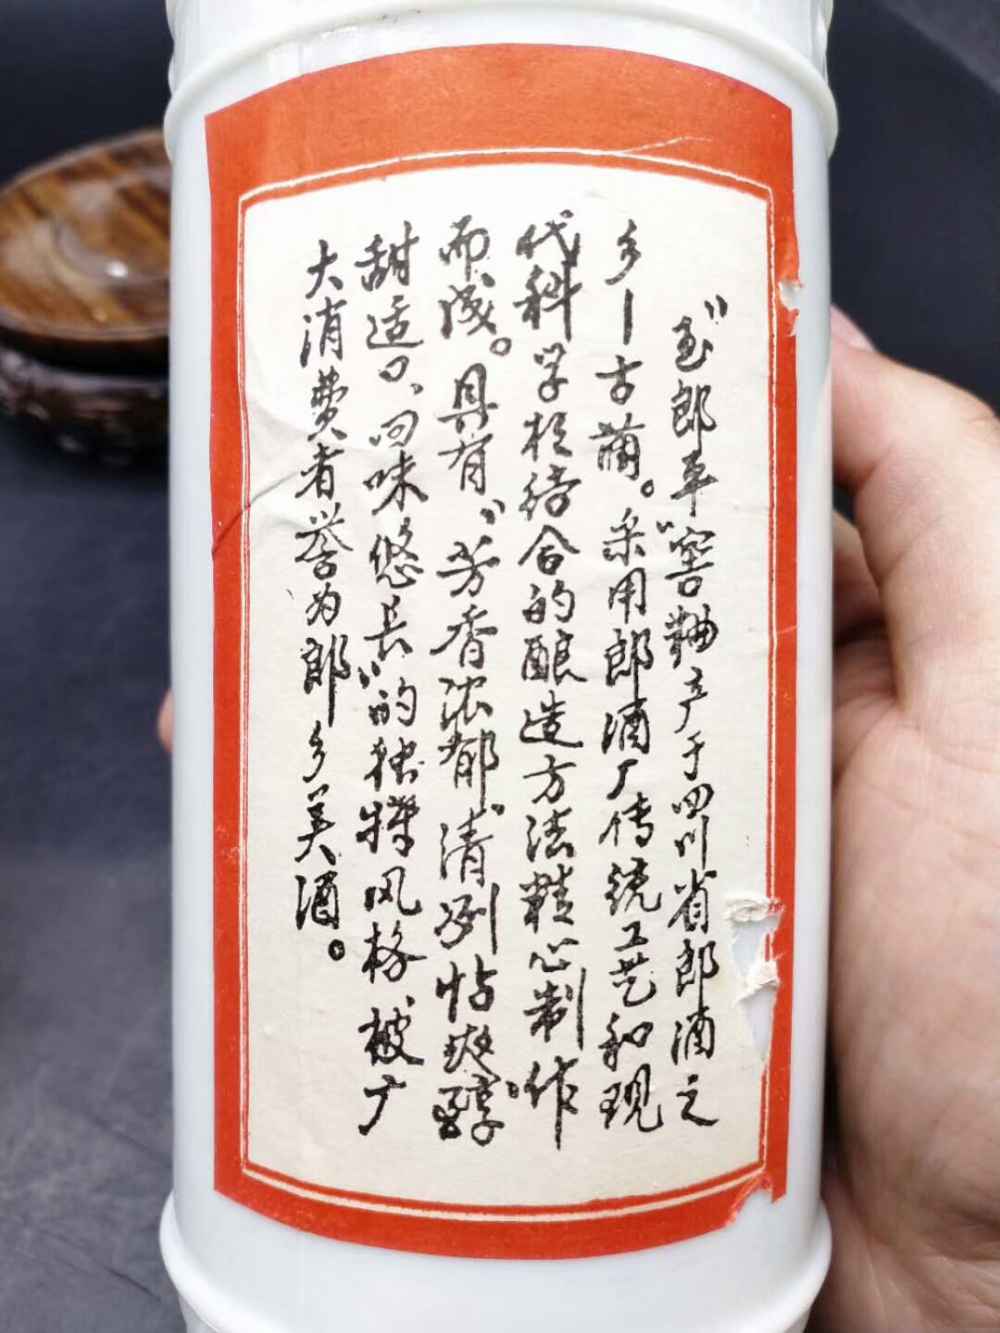 郎 ”窖粬产于四川省郎酒之
乡—古蔺。采用郎酒厂传统工艺和现
代科学相结合的酿造方法精心制作
而成。具有“芳香浓郁、清冽怡爽、醇
甜适口、回味悠长”的独特风格、被广
大消费者誉为郎乡美酒。